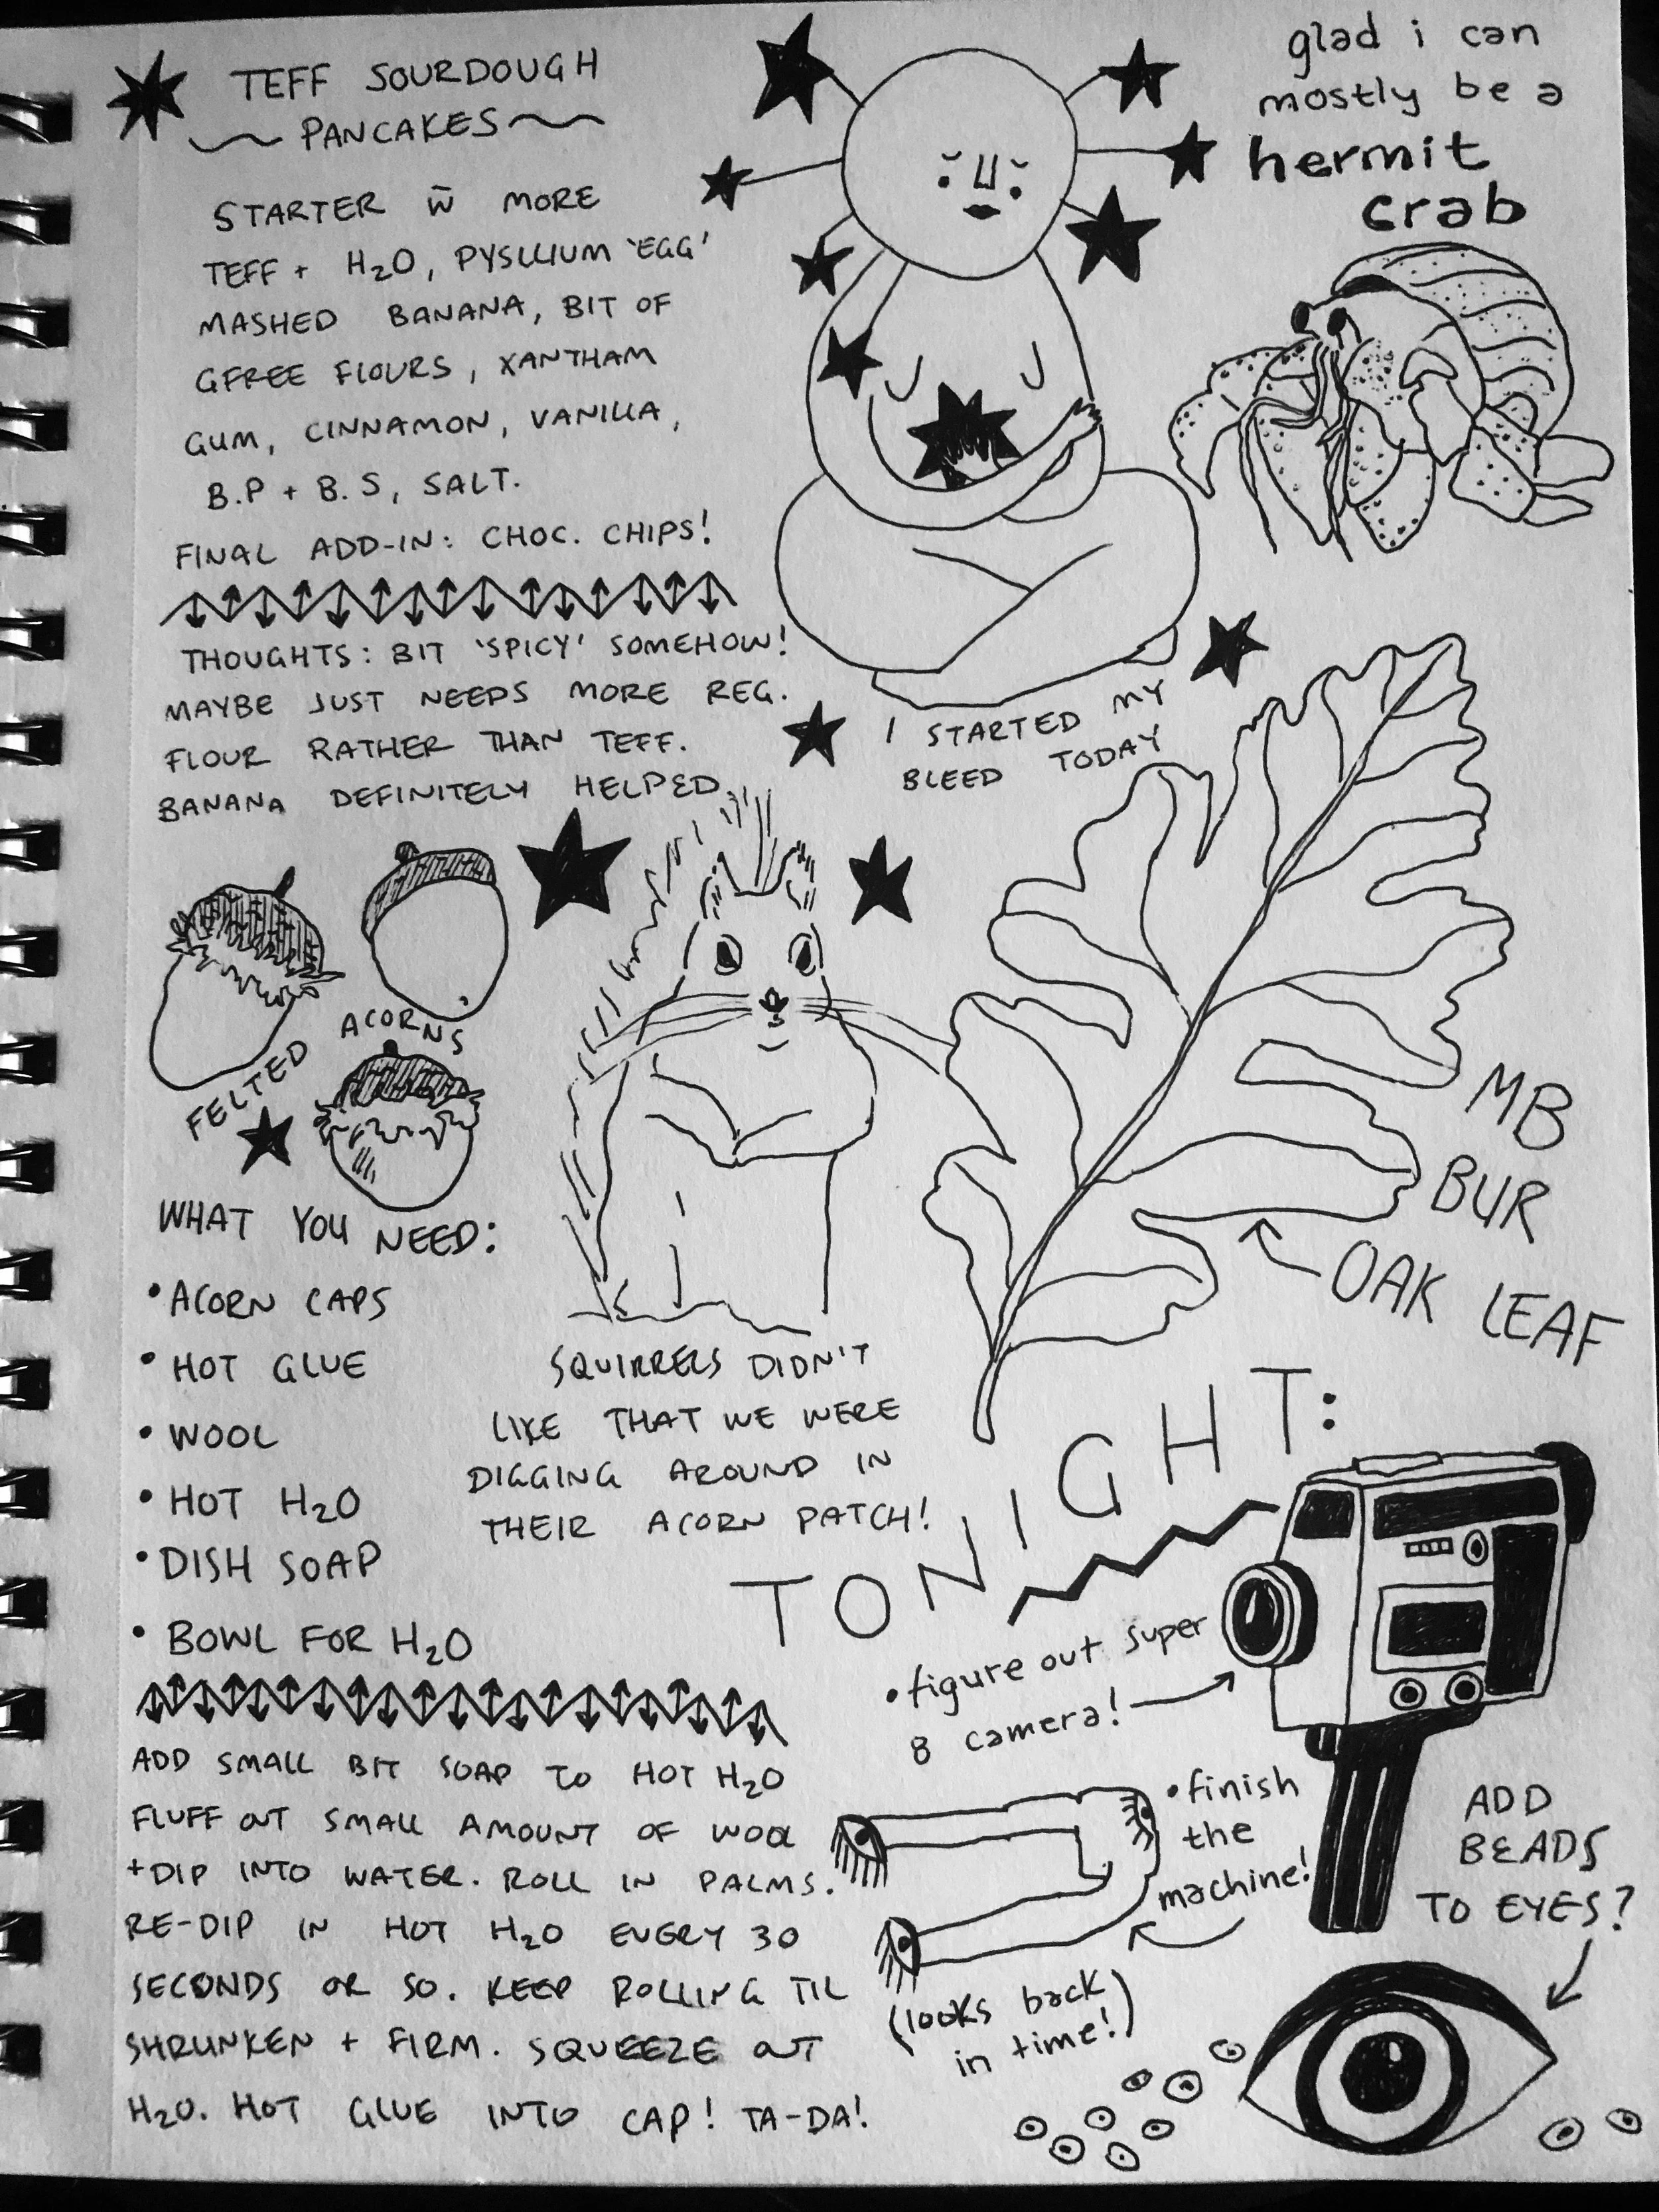 TEFF SOURDOUGH
PANCAKES
STARTER W̄ MORE
TEFF + H2O, PYSLLIUM 'EGG'
MASHED BANANA, BIT OF
GFREE FLOURS, XANTHAM
GUM, CINNAMON, VANILLA,
B.P + B.S, SALT.
FINAL ADD-IN: CHOC. CHIPS!
THOUGHTS: BIT 'SPICY' SOMEHOW!
MAYBE JUST NEEDS MORE REG.
FLOUR RATHER THAN TEFF.
BANANA DEFINITELY HELPED.
glad i can
mostly be a
hermit
crab
I STARTED MY
BLEED TODAY
FELTED ACORNS
WHAT YOU NEED:
• ACORN CAPS
• HOT GLUE
• WOOL
• HOT H2O
• DISH SOAP
• BOWL FOR H2O
SQUIRRELS DIDN'T
LIKE THAT WE WERE
DIGGING AROUND IN
THEIR ACORN PATCH!
MB
BUR
OAK LEAF
ADD SMALL BIT SOAP TO HOT H2O
FLUFF OUT SMALL AMOUNT OF WOOL
+ DIP INTO WATER. ROLL IN PALMS.
RE-DIP IN HOT H2O EVERY 30
SECONDS OR SO. KEEP ROLLING TIL
SHRUNKEN + FIRM. SQUEEZE OUT
H2O. HOT GLUE INTO CAP! TA-DA!
TONIGHT:
• figure out super
8 camera!
• finish
the
machine!
(looks back
in time!)
ADD
BEADS
TO EYES?